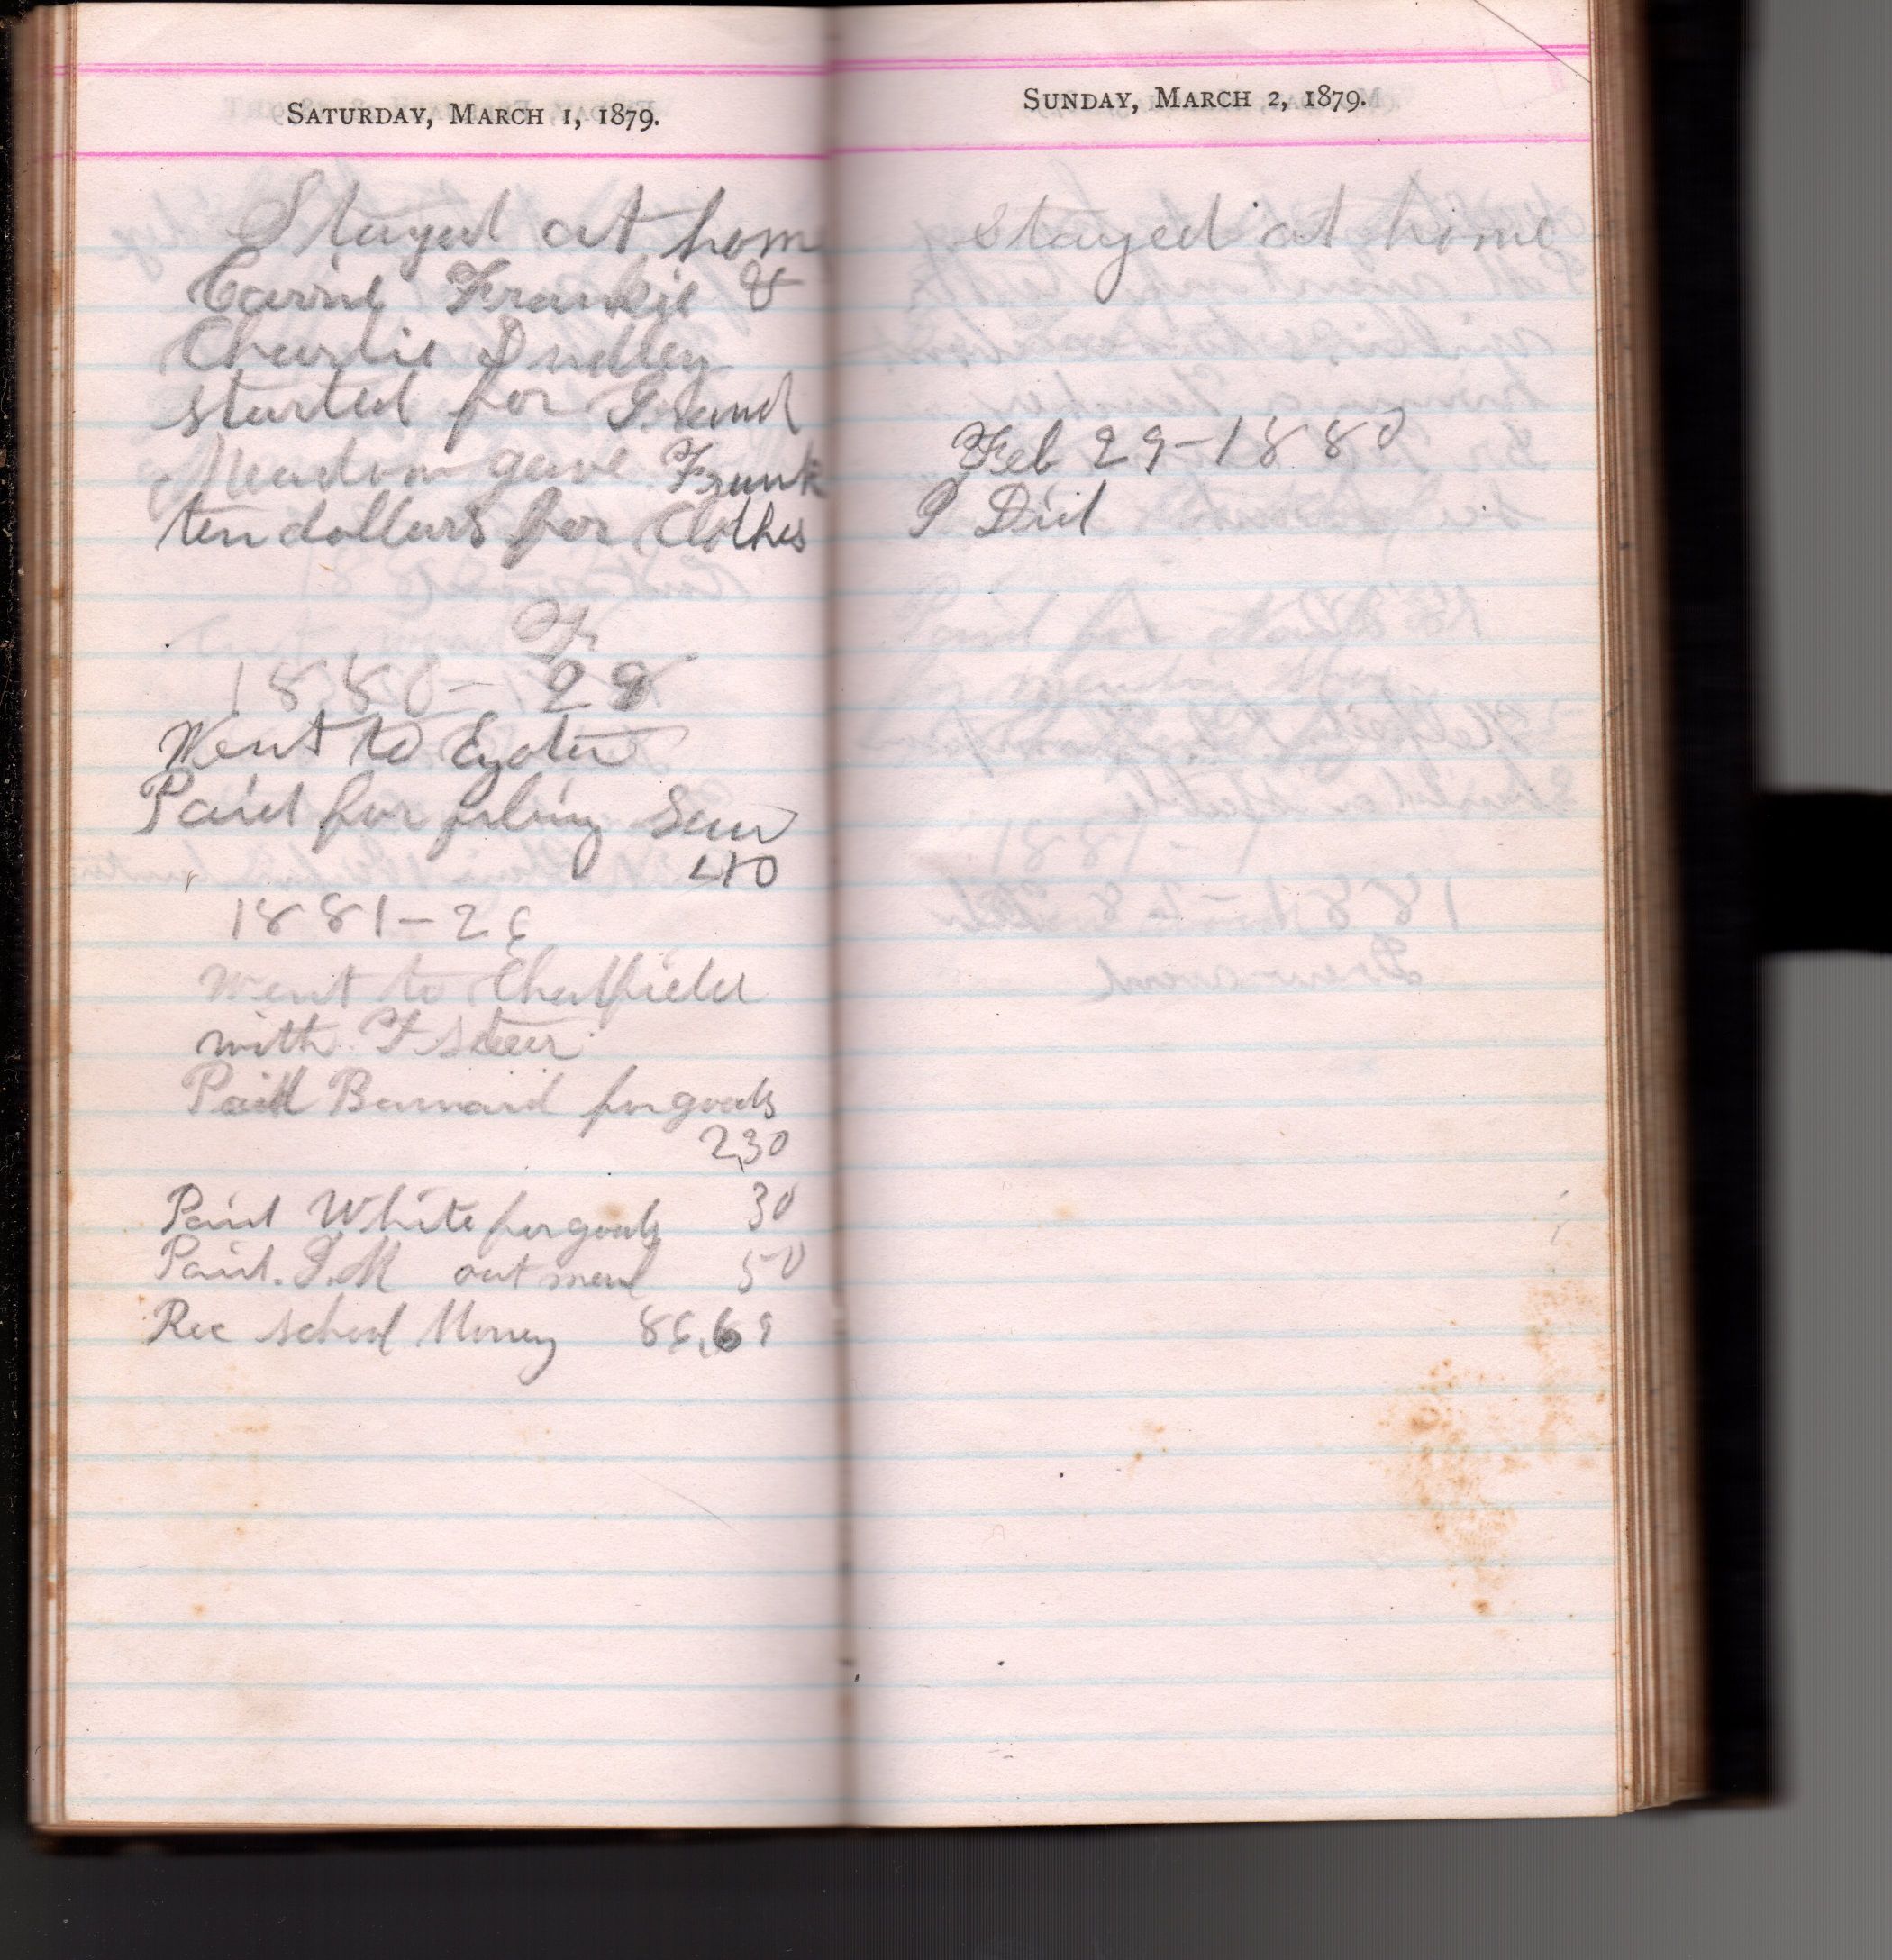 SATURDAY, MARCH 1, 1879.
Stayed at hom
Carrie Frankie &
Charlie Dudley
started for Grand
Meadow gave Frank
ten dollars for Clothes
1880 - 29
Went to Eyota
Paid for filing Saw
40
1881 - 26
went to Chatfield
with
Paid Barnard for goods
2,30
Paid White for goods 30
Paid. oat meal 50
Rec school Money 86,69
SUNDAY, MARCH 2, 1879.
stayed at home
Feb 29 - 1880